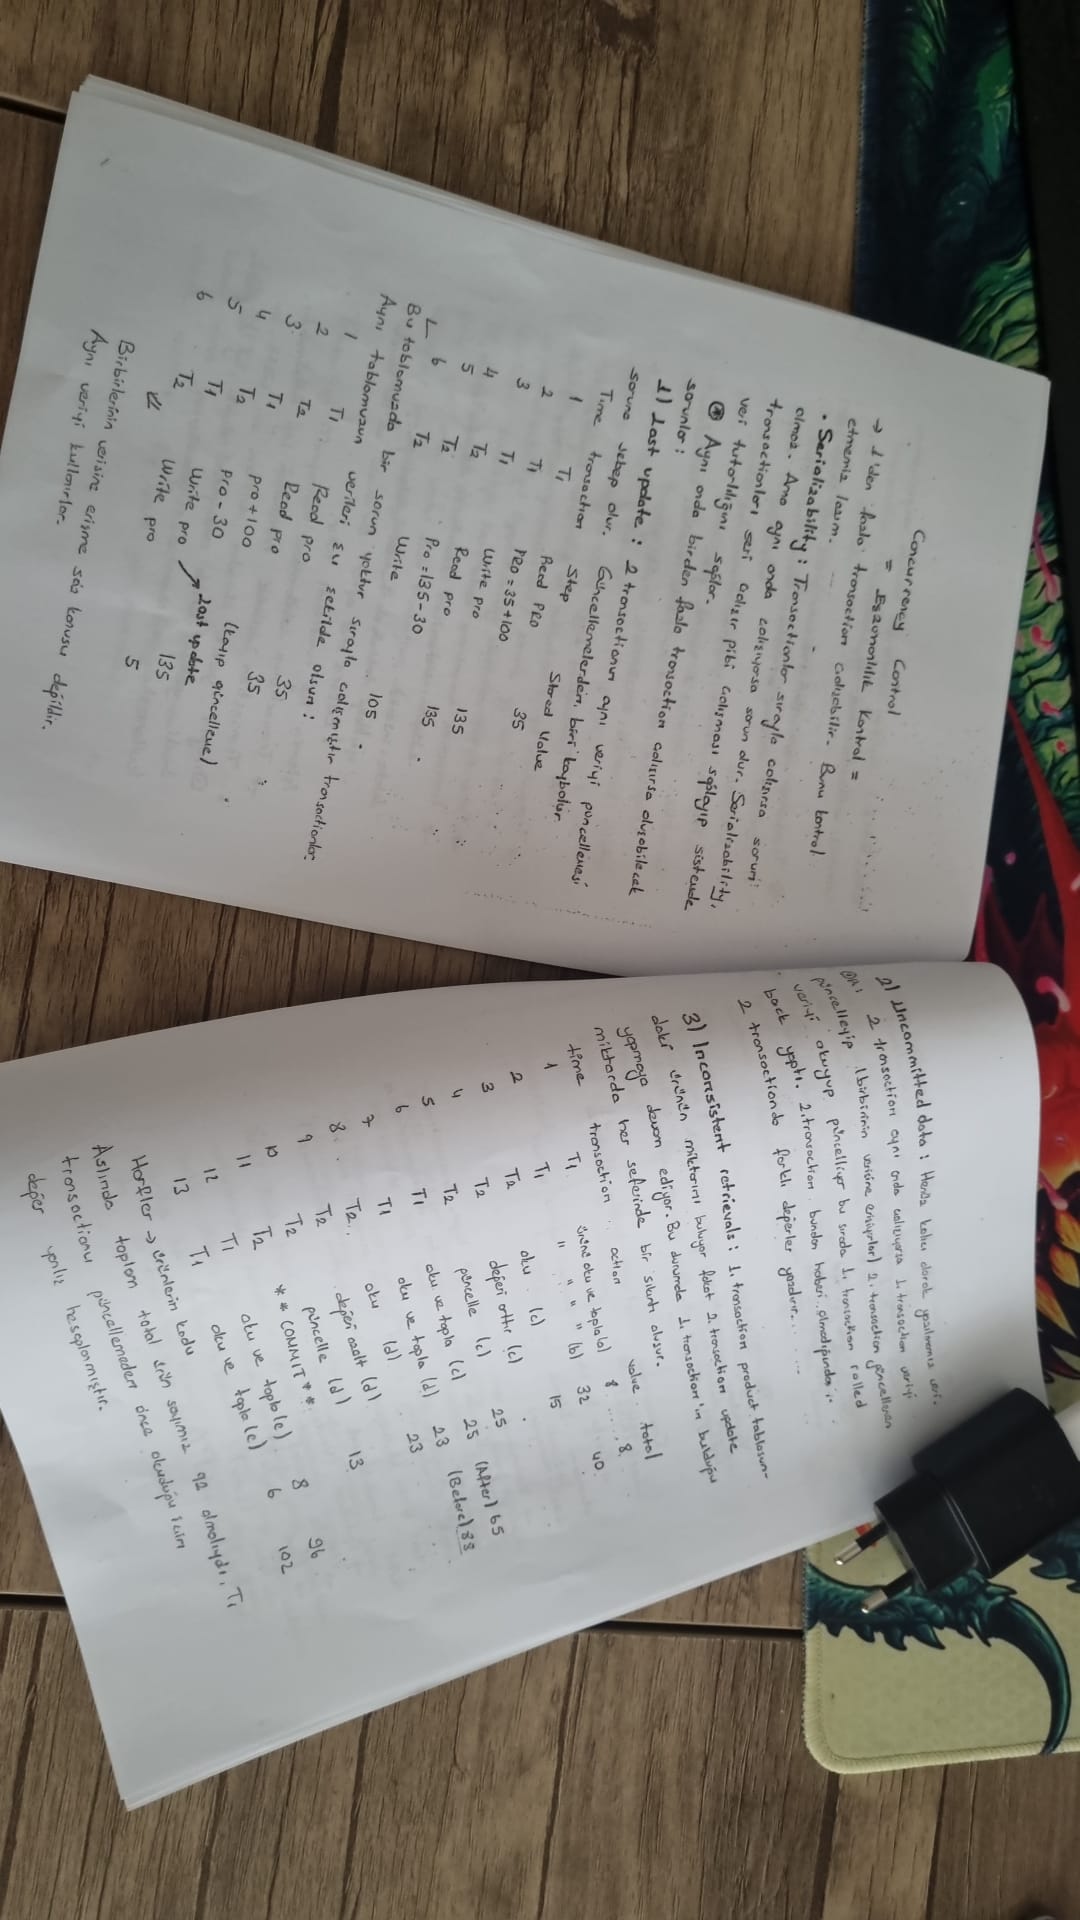 Concurrency Control
= Eşzamanlılık Kontrol =
→ 1'den fazla transaction çalışabilir. Bunu kontrol
etmemiz lazım.
• Serializability : Transactionlar sırayla çalışırsa sorun
olmaz. Ama aynı anda çalışıyorsa sorun olur. Serializability,
transactionları seri çalışır gibi çalışması sağlayıp sistemde
veri tutarlılığını sağlar.
⊛ Aynı anda birden fazla transaction çalışırsa oluşabilecek
sorunlar :
1) Last update : 2 transactionın aynı veriyi güncellemesi
soruna sebep olur. Güncellemelerden biri kaybolur.
Time transaction Step Stored Value
1 T1 Read PRO 35
2 T1 PRO = 35+100
3 T1 Write pro 135
4 T2 Read pro 135
5 T2 Pro = 135-30
6 T2 Write 105
↳
Bu tablomuzda bir sorun yoktur sırayla çalışmıştır transactionlar
Aynı tablomuzun verileri şu şekilde olsun :
1 T1 Read pro 35
2 T2 Read pro 35
3 T1 pro+100
4 T2 pro-30 (kayıp güncelleme)
5 T1 Write pro → Last update 135
6 T2 Write pro 5
Birbirlerinin verisine erişme söz konusu değildir.
Aynı veriyi kullanırlar.
2) Uncommitted data : Henüz kalıcı olarak yazılmamış veri.
ÖR: 2 transaction aynı anda çalışıyorsa 1. transaction veriyi
güncelleyip (birbirinin verisine erişiyorlar) 2. transaction güncellenen
veriyi okuyup güncelliyor bu sırada 1. transaction rolled
back yaptı. 2. transaction bundan haberi olmadığından
2 transactionda farklı değerler yazdırır.
3) Inconsistent retrievals : 1. transaction product tablosun-
daki ürünün miktarını buluyor fakat 2. transaction update
yapmaya devam ediyor. Bu durumda 1. transaction'ın bulduğu
miktarda her seferinde bir sıkıntı oluşur.
time transaction action value total
1 T1 ürünü oku ve topla (a) 8 8
2 T1 " " " (b) 32 40
3 T2 oku (c) 15
4 T2 değeri arttır (c)
5 T2 güncelle (c) 25
6 T1 oku ve topla (c) 25 (After) 65
7 T1 oku ve topla (d) 23 (Before) 88
8 T2 oku (d) 23
9 T2 değeri azalt (d)
10 T2 güncelle (d) 13
11 T2 ** COMMIT **
12 T1 oku ve topla (e) 8 96
13 T1 oku ve topla (e) 6 102
Harfler → ürünlerin kodu
Aslında toplam total ürün sayımız 92 olmalıydı, T1
transactionu güncellemeden önce okuduğu için
değer yanlış hesaplamıştır.